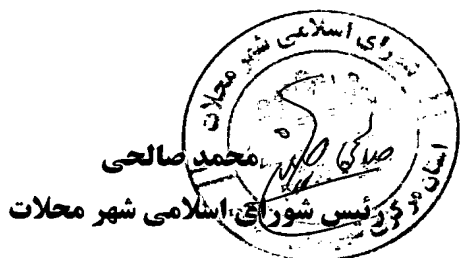 شورای اسلامی شهر محلات
استان مرکزی
محمد صالحی
رئیس شورای اسلامی شهر محلات